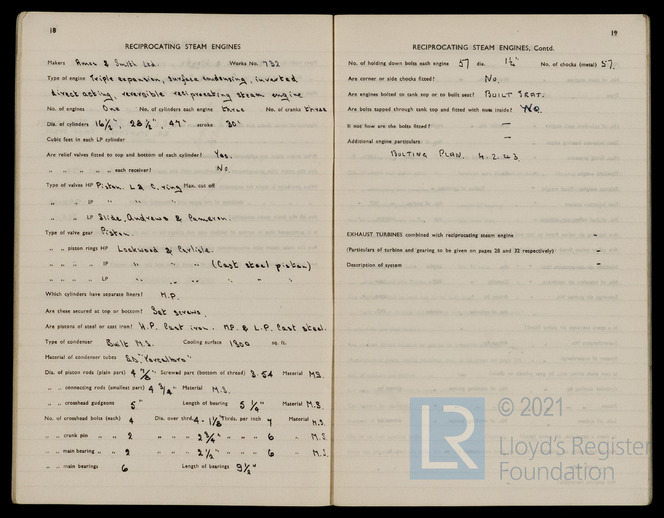 18
RECIPROCATING STEAM ENGINES
Makers Amos & Smith Ltd. Works No. 732
Type of engine Triple expansion, surface condensing, inverted
direct acting, reversible reciprocating steam engine
No. of engines One No. of cylinders each engine three No. of cranks three
Dia. of cylinders 16½", 28½", 47" stroke 30"
Cubic feet in each LP cylinder
Are relief valves fitted to top and bottom of each cylinder? Yes.
" " " " " each receiver? No.
Type of valves HP Piston. L & C. ring Max. cut off
" " IP " "
" " LP Slide, Andrews & Cameron.
Type of valve gear Piston.
" " piston rings HP Lockwood & Carlisle.
" " " " IP " " (Cast steel piston)
" " " " LP " " " "
Which cylinders have separate liners? H.P.
Are these secured at top or bottom? Set screws.
Are pistons of steel or cast iron? H.P. Cast iron. M.P. & L.P. Cast steel.
Type of condenser Built M.S. Cooling surface 1300 sq. ft.
Material of condenser tubes
Dia. of piston rods (plain part) 4 7/8" Screwed part (bottom of thread) 3.54 Material M.S.
" " connecting rods (smallest part) 4 3/4" Material M.S.
" " crosshead gudgeons 5" Length of bearing 5 1/4" Material M.S.
No. of crosshead bolts (each) 4 Dia. over thrd. 4 - 1 1/8" Thrds. per inch 7 Material M.S.
" " crank pin " " 2 " " " " 2 3/4" " " " 6 " M.S.
" " main bearing " " 2 " " " " 2 1/2" " " " 6 " M.S.
" " main bearings 6 Length of bearings 9½"
19
RECIPROCATING STEAM ENGINES, Contd.
No. of holding down bolts each engine 57 dia. 1¼" No. of chocks (metal) 57.
Are corner or side chocks fitted? No.
Are engines bolted to tank top or to built seat? BUILT SEAT.
Are bolts tapped through tank top and fitted with nuts inside? No.
If not how are the bolts fitted? —
Additional engine particulars —
BOLTING PLAN. 4.2.43.
EXHAUST TURBINES combined with reciprocating steam engine -
(Particulars of turbine and gearing to be given on pages 28 and 32 respectively) -
Description of system -
LR
© 2021
Lloyd's Register
Foundation